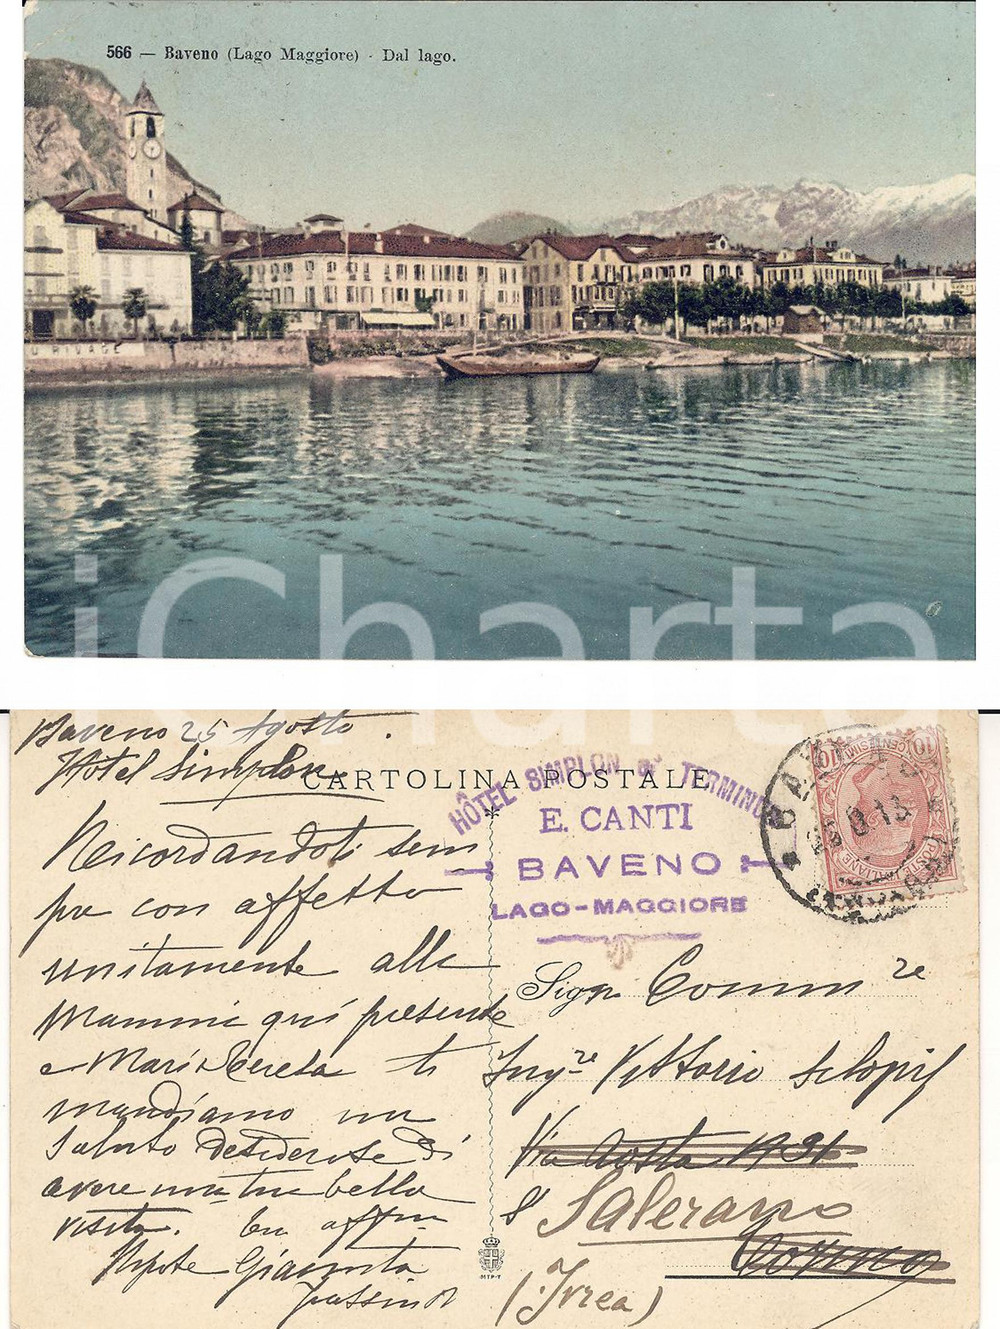 566 — Baveno (Lago Maggiore) - Dal lago.
U RIVAGE
iCharta
Baveno 25 Agosto.
Hotel Simplon
CARTOLINA POSTALE
HÔTEL SIMPLON TERMINUS
E. CANTI
BAVENO
LAGO-MAGGIORE
10 CENTESIMI 10
POSTE ITALIANE
Ricordandoti sem
pre con affetto
unitamente alla
Mamma qui presente
e Maria Teresa ti
mandiamo un
saluto desiderose di
avere una tua bella
visita. 
Nipote Giacinta
Sign. Comm re
Ing.re Vittorio Sclopis
Via Aosta
Salerano
Torino
(Ivrea)